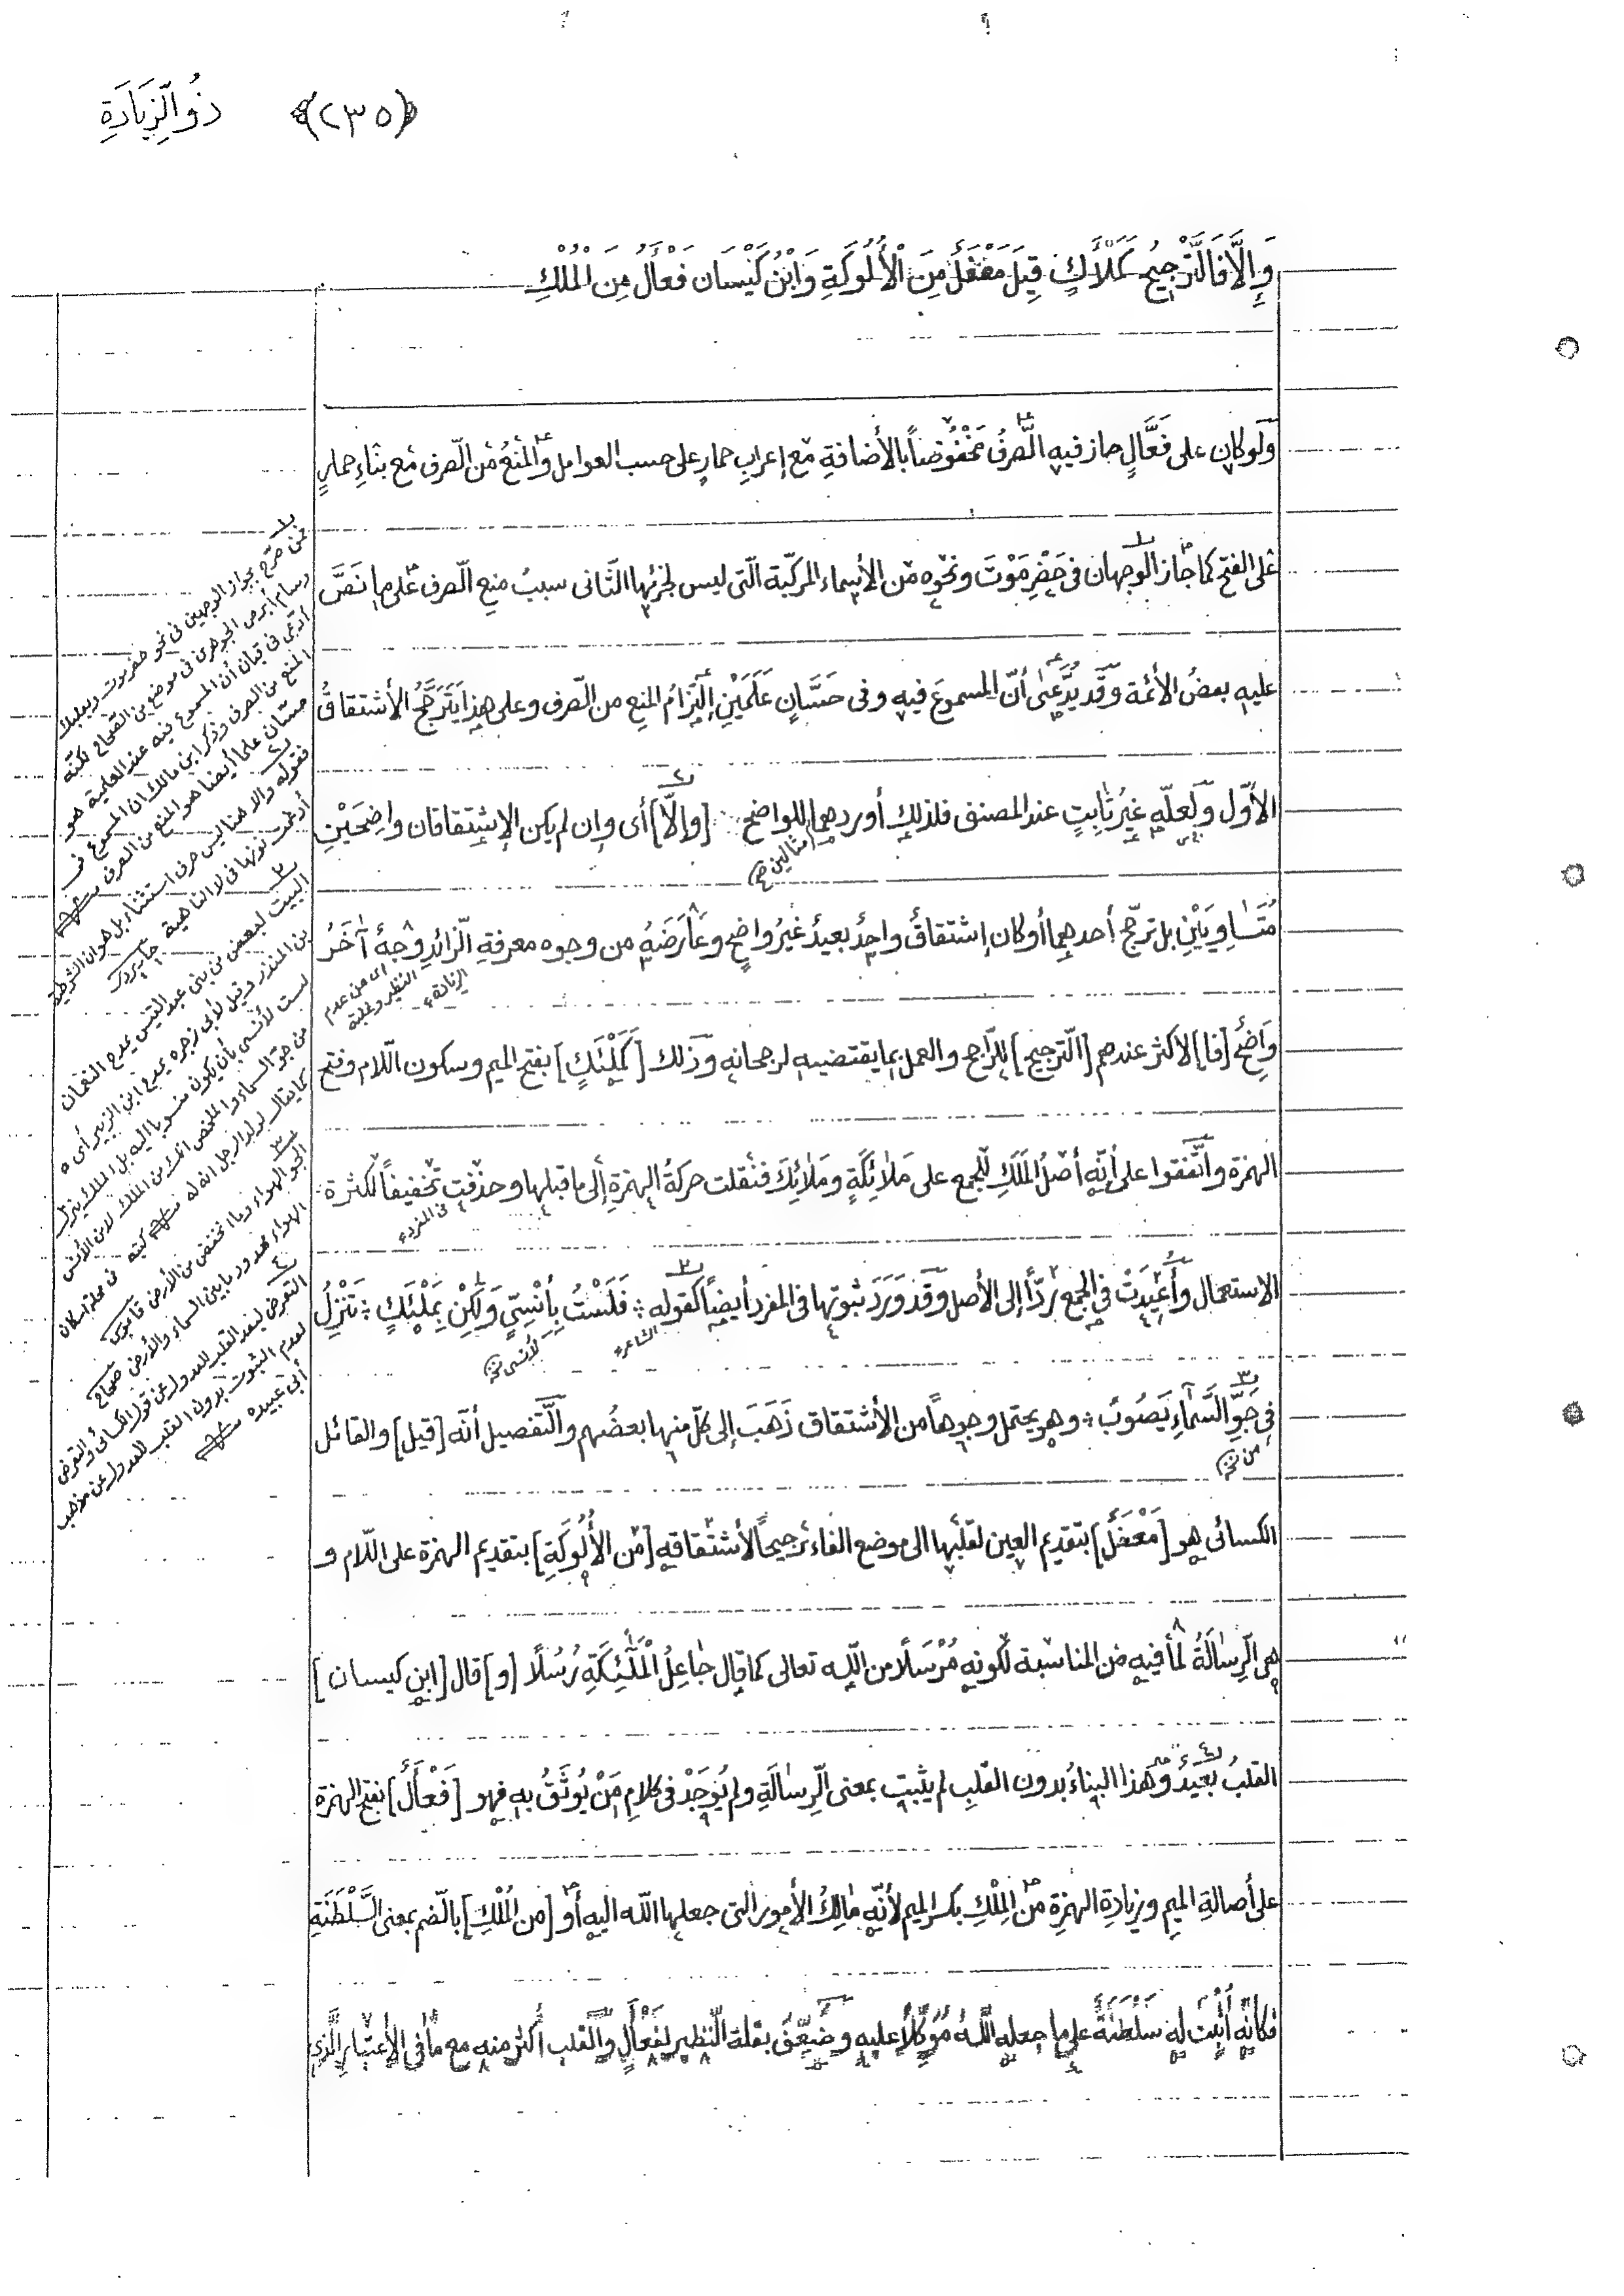 ذُو الزِّيَادَةِ
﴿٢٣٥﴾
وَإِلَّا فَالتَّرْجِيحُ كَمَلْأَكٍ قِيلَ مَعْفَلٌ مِنَ الْأُلُوكَةِ وَابْنُ كَيْسَان فَعْأَلٌ مِنَ الْمُلْكِ
ولو كان على فَعَّالٍ جاز فيه الصّرفُ مَخْفُوضاً بالأضافةِ مع إعرابِ حمارٍ على حسب العوامل والمنعُ من الصّرف مع بناءِ حمارٍ
على الفتح كما جاز الوجهان فى حَضْرِ مَوْتَ ونحوِه من الأسماء المركّبة الّتى ليس لجزئها الثّانى سببُ منعِ الصّرف على ما نَصَّ
عليه بعضُ الأئمة وقد يُدَّعىٰ أنّ المسموعَ فيه وفى حَسَّانٍ عَلَمَيْنِ إلتزامُ المنعِ من الصّرف وعلى هذا يَتَرَجَّحُ الأشتقاقُ
الأوّل ولعلّه غيرُ ثابِتٍ عند المصنف فلذلك أوردهما للواضح [وإلّا] أى وإن لم يكن الإشتقاقان واضِحَيْنِ
مثالين
مُتَساوِيَيْنِ بل ترجّح أحدهما أو كان إشتقاقٌ واحدٌ بعيدٌ غيرُ واضحٍ وعَارَضَهُ من وجوه معرفةِ الزّائدِ وجهٌ آخَرُ
اى من عدم النظير وغلبة الزيادة
وَاضِحٌ [فا] لاكثر عندهم [التّرجيح] للرّاجح والعمل بما يقتضيه لرجحانه وذلك [كَمَلْئَكٍ] بفتح الميم وسكون اللّام وفتح
الهمزة واتّفقوا على أنّه أصلُ المَلَكِ للجمع على مَلائِكَةٍ ومَلائِكَ فنقلت حركةُ الهمزةِ إلى ما قبلها وحذفت تخفيفاً لكثرة
فى المفرد
الاستعمال وأُعيدَتْ فى الجمع ردّاً إلى الأصل وقد وَرَدَ ثبوتها فى المفرد أيضاً كقوله ؛ فَلَسْتُ بِأُنْسِيٍّ وَلٰكِنْ بِمَلْئَكٍ ؛ تَنَزَّلُ
الشاعر
لأنسى خ
فى جَوِّ السَّماءِ يَصُوبُ ؛ وهو يحتمل وجوهاً من الأشتقاق ذَهَبَ إلى كلّ منها بعضُهم والتّفصيل أنّه [قيل] والقائل
من خ
الكسائى هو [مَعْفَلٌ] بتقديم العين لقلبها الى موضع الفاء ترجيحاً لأشتقاقه [من الأُلُوكَةِ] بتقديم الهمزة على اللّام و
هى الرِّسالَةُ لما فيه من المناسبة لكونه مُرْسَلًا من اللّه تعالى كما قال جاعِلُ الْمَلٰئِكَةِ رُسُلًا [و] قال [ابن كيسان]
القلبُ بعيدٌ وهذا البناءُ بدون القلبِ لم يثبت بمعنى الرِّسالَةِ ولم يُوجَدْ فى كلامِ مَنْ يُوثَقُ به فهو [فَعْأَلٌ] بفتح الهمزة
على أصالةِ الميم وزيادةِ الهمزة من المِلْكِ بكسر الميم لأنّه مالِكُ الأمور التى جعلها اللّه اليه أو [من المُلْكِ] بالضم بمعنى السَّلْطَنَةِ
فكانّه أُثْبِتَ له سَلْطَنَةٌ على ما جعله اللّهُ مُوَكَّلًا عليه وضُعِّفَ بقلة النّظير لِفَعْأَلٍ والقلب أكثر منه مع ما فى الأعتبارِ الّذى
ممن صرّح بجواز الوجهين فى نحو حضرموت وبعلبك
وسام أبرص الجوهرى فى موضع من الصّحاح لكنّه
ادّعى فى قبان أن المسموع فيه عند العلمية هو
المنع من الصرف وذكر ابن مالك ان المسموع فى
حسّان علما أيضا هو المنع من الصرف
فقوله والا هنا ليس حرف استثناء بل هو ان الشرطية
أدغمت نونها فى لا النافية
البيت لبعض من بنى عبد القيس يمدح النعمان
بن المنذر وقيل لأبى وجزه يمدح ابن الزبير أى
لست لأنسى بأن يكون منسوبا اليه بل الملك ينزل
من جوّ السماء والملخص انك من الملك لا من الأنس
كما يقال لولد الرجل انه له
الجو الهواء وما انخفض من الأرض قاموس
الهواء ممدود ما بين السماء والأرض صحاح
التعرض لبعد القلب للعدول عن قول الكسائى والتعرض
لعدم الثبوت بدون القلب للعدول عن مذهب
أبى عبيده